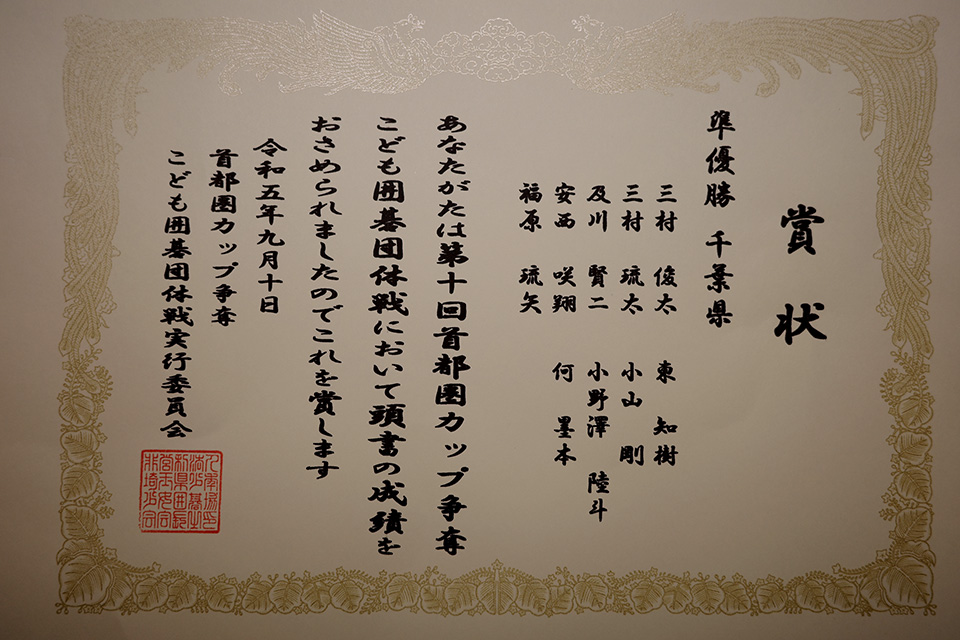 賞状
準優勝 千葉県
三村 俊太 東 知樹
三村 琉太 小山 剛
及川 賢二 小野澤 陸斗
安西 咲翔 何 墨本
福原 琉矢
あなたがたは第十回首都圏カップ争奪
こども囲碁団体戦において頭書の成績を
おさめられましたのでこれを賞します
令和五年九月十日
首都圏カップ争奪
こども囲碁団体戦実行委員会